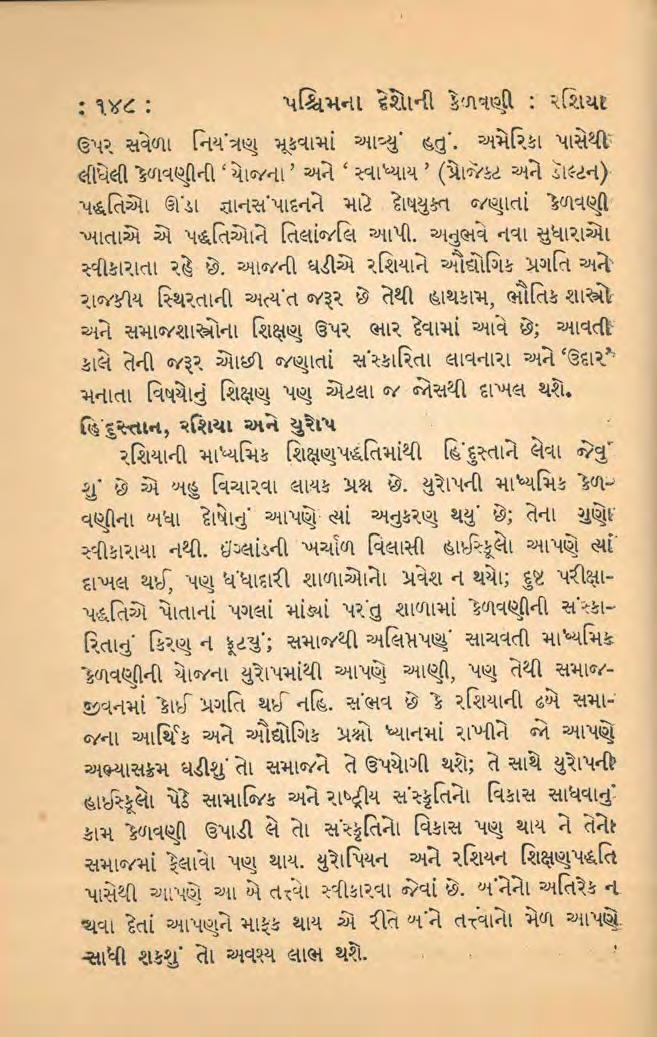 : ૧૪૮ : પશ્ચિમના દેશોની કેળવણી : રશિયા
ઉપર સવેળા નિયંત્રણ મૂકવામાં આવ્યું હતું. અમેરિકા પાસેથી
લીધેલી કેળવણીની ‘ યોજના ’ અને ‘ સ્વાધ્યાય ’ (પ્રોજેક્ટ અને ડૉલ્ટન)
પદ્ધતિઓ ઊંડા જ્ઞાનસંપાદનને માટે દોષયુક્ત જણાતાં કેળવણી
ખાતાએ એ પદ્ધતિઓને તિલાંજલિ આપી. અનુભવે નવા સુધારાઓ
સ્વીકારાતા રહે છે. આજની ઘડીએ રશિયાને ઔદ્યોગિક પ્રગતિ અને
રાજકીય સ્થિરતાની અત્યંત જરૂર છે તેથી હાથકામ, ભૌતિક શાસ્ત્રો
અને સમાજશાસ્ત્રોના શિક્ષણ ઉપર ભાર દેવામાં આવે છે; આવતી
કાલે તેની જરૂર ઓછી જણાતાં સંસ્કારિતા લાવનારા અને ‘ઉદાર’
મનાતા વિષયોનું શિક્ષણ પણ એટલા જ જોસથી દાખલ થશે.
હિંદુસ્તાન, રશિયા અને યુરોપ
રશિયાની માધ્યમિક શિક્ષણપદ્ધતિમાંથી હિંદુસ્તાને લેવા જેવું
શું છે એ બહુ વિચારવા લાયક પ્રશ્ન છે. યુરોપની માધ્યમિક કેળ-
વણીના બધા દોષોનું આપણે ત્યાં અનુકરણ થયું છે; તેના ગુણો
સ્વીકારાયા નથી. ઇંગ્લાંડની ખર્ચાળ વિલાસી હાઈસ્કૂલો આપણે ત્યાં
દાખલ થઈ, પણ ધંધાદારી શાળાઓનો પ્રવેશ ન થયો; દુષ્ટ પરીક્ષા-
પદ્ધતિએ પોતાનાં પગલાં માંડ્યાં પરંતુ શાળામાં કેળવણીની સંસ્કા-
રિતાનું કિરણ ન ફૂટ્યું; સમાજથી અલિપ્તપણું સાચવતી માધ્યમિક
કેળવણીની યોજના યુરોપમાંથી આપણે આણી, પણ તેથી સમાજ-
જીવનમાં કોઈ પ્રગતિ થઈ નહિ. સંભવ છે કે રશિયાની ઢબે સમા-
જના આર્થિક અને ઔદ્યોગિક પ્રશ્નો ધ્યાનમાં રાખીને જો આપણે
અભ્યાસક્રમ ઘડીશું તો સમાજને તે ઉપયોગી થશે; તે સાથે યુરોપની
હાઈસ્કૂલો પેઠે સામાજિક અને રાષ્ટ્રીય સંસ્કૃતિનો વિકાસ સાધવાનું
કામ કેળવણી ઉપાડી લે તો સંસ્કૃતિનો વિકાસ પણ થાય ને તેનો
સમાજમાં ફેલાવો પણ થાય. યુરોપિયન અને રશિયન શિક્ષણપદ્ધતિ
પાસેથી આપણે આ બે તત્ત્વો સ્વીકારવા જેવાં છે. બંનેનો અતિરેક ન
થવા દેતાં આપણને માફક થાય એ રીતે બંને તત્ત્વોનો મેળ આપણે
સાધી શકશું તો અવશ્ય લાભ થશે.